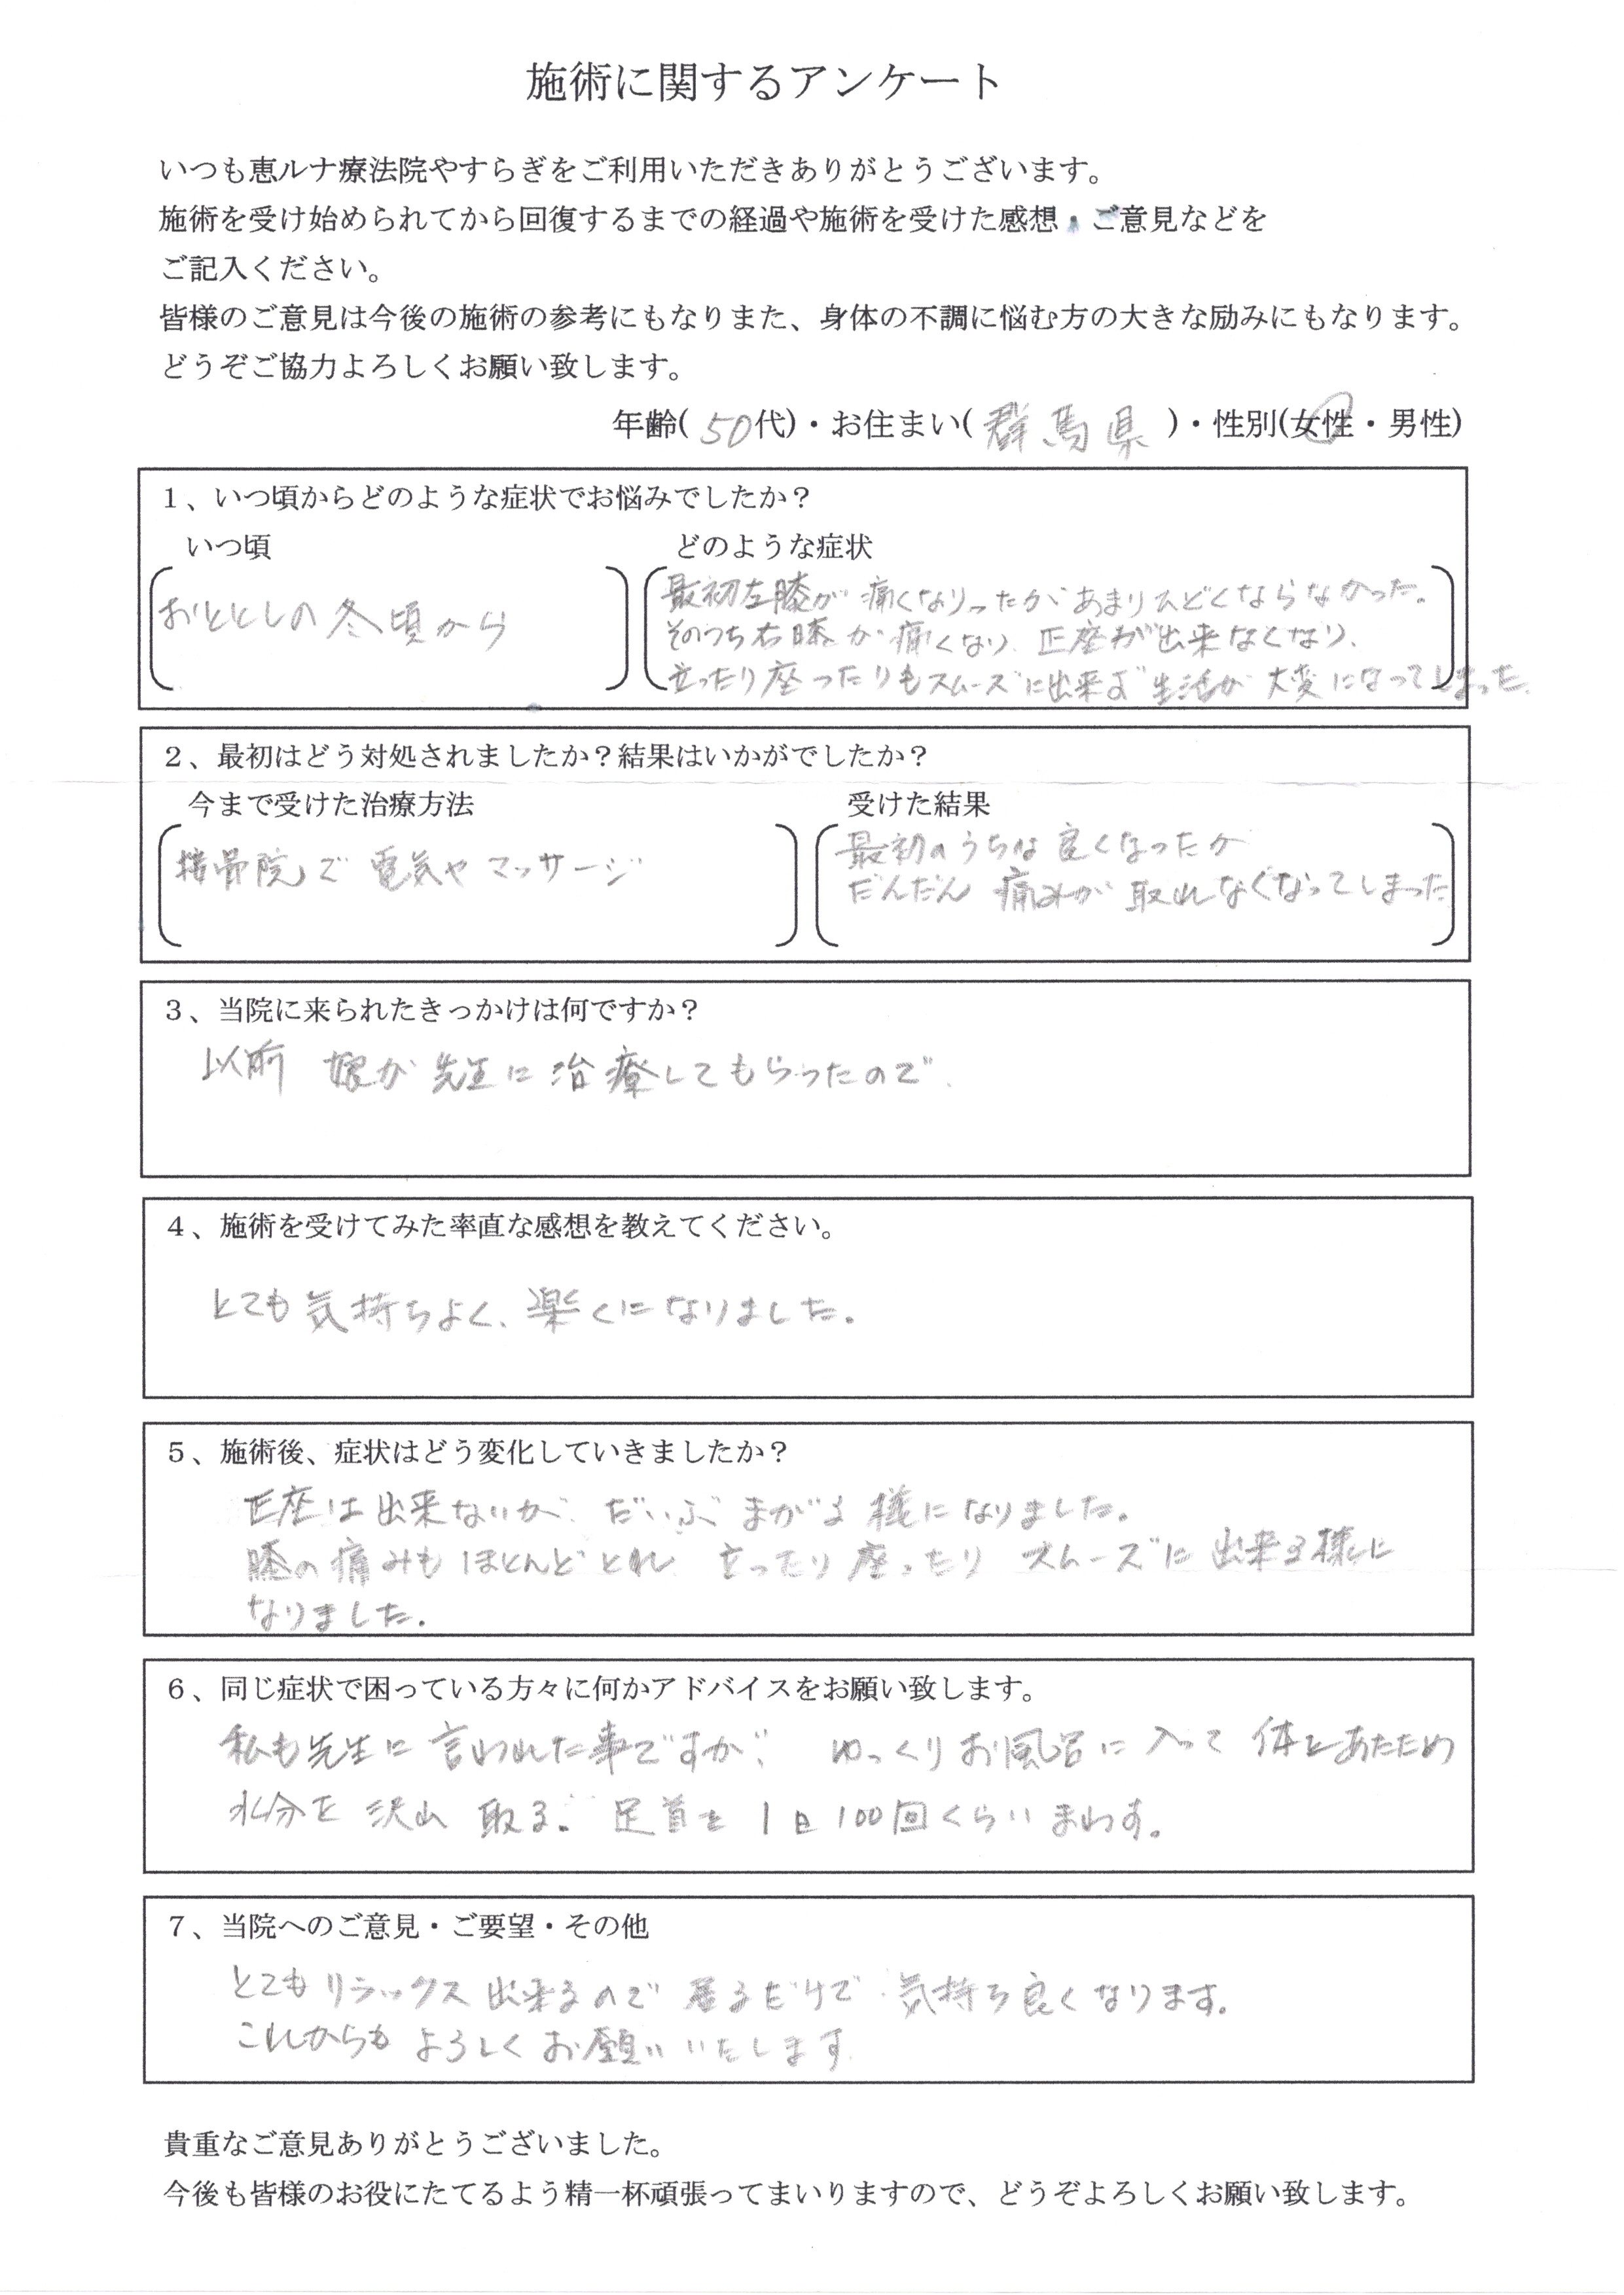 施術に関するアンケート
いつも恵ルナ療法院やすらぎをご利用いただきありがとうございます。
施術を受け始められてから回復するまでの経過や施術を受けた感想、ご意見などを
ご記入ください。
皆様のご意見は今後の施術の参考にもなりまた、身体の不調に悩む方の大きな励みにもなります。
どうぞご協力よろしくお願い致します。
年齢(50代)・お住まい(群馬県)・性別(女性・男性)
1、いつ頃からどのような症状でお悩みでしたか？
いつ頃 どのような症状
おととしの冬頃から
最初左膝が痛くなりったが、あまりひどくならなかった。
そのうち右膝が痛くなり、正座が出来なくなり、
立ったり座ったりもスムーズに出来ず生活が大変になってしまった。
2、最初はどう対処されましたか？結果はいかがでしたか？
今まで受けた治療方法 受けた結果
接骨院で電気やマッサージ
最初のうちは良くなったが
だんだん痛みが取れなくなってしまった
3、当院に来られたきっかけは何ですか？
以前 娘が先生に治療してもらったので、
4、施術を受けてみた率直な感想を教えてください。
とても気持ちよく、楽くになりました。
5、施術後、症状はどう変化していきましたか？
正座は出来ないが、だいぶまがる様になりました。
膝の痛みもほとんどとれ 立ったり座ったりスムーズに出来る様に
なりました。
6、同じ症状で困っている方々に何かアドバイスをお願い致します。
私も先生に言われた事ですが、ゆっくりお風呂に入って体をあたため
水分を沢山取る。足首を1日100回くらいまわす。
7、当院へのご意見・ご要望・その他
とてもリラックス出来るので居るだけで気持ち良くなります。
これからもよろしくお願いいたします
貴重なご意見ありがとうございました。
今後も皆様のお役にたてるよう精一杯頑張ってまいりますので、どうぞよろしくお願い致します。